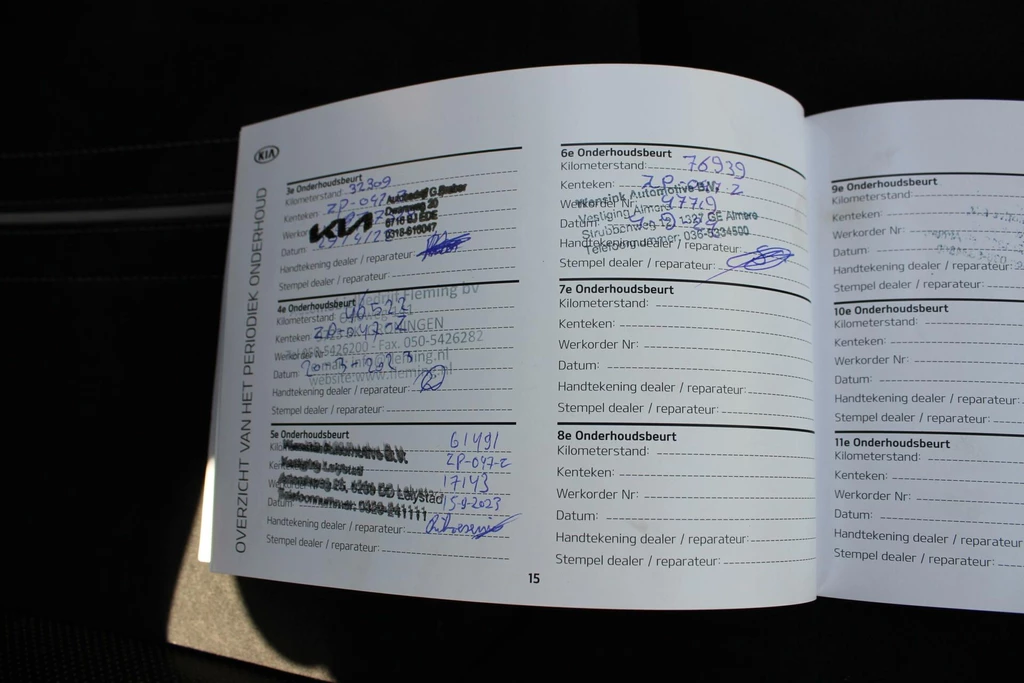 KIA
OVERZICHT VAN HET PERIODIEK ONDERHOUD
3e Onderhoudsbeurt
Kilometerstand: 32309
Kenteken:
Autobedrijf G.
KIA
Datum:
0318-616047
Handtekening dealer / reparateur:
Stempel dealer / reparateur:
4e Onderhoudsbeurt
Fleming bv
Kilometerstand: 46522
Kenteken: ZP-047-Z
Werkorder Nr:
050-5426200 - Fax. 050-5426282
Datum: 20-3-2023
website:www.fleming.nl
Handtekening dealer / reparateur:
Stempel dealer / reparateur:
5e Onderhoudsbeurt
61491
Automotive B.V.
ZP-047-Z
Vestiging Lelystad
17143
Lelystad
Datum: 15-9-2023
Telefoonnummer: 0320-241111
Handtekening dealer / reparateur:
Stempel dealer / reparateur:
6e Onderhoudsbeurt
Kilometerstand: 76939
Kenteken:
Wensink Automotive B.V.
Werkorder Nr:
Vestiging Almere
Datum:
1327 GE Almere
Telefoonnummer: 036-5334500
Handtekening dealer / reparateur:
Stempel dealer / reparateur:
7e Onderhoudsbeurt
Kilometerstand:
Kenteken:
Werkorder Nr:
Datum:
Handtekening dealer / reparateur:
Stempel dealer / reparateur:
8e Onderhoudsbeurt
Kilometerstand:
Kenteken:
Werkorder Nr:
Datum:
Handtekening dealer / reparateur:
Stempel dealer / reparateur:
15
9e Onderhoudsbeurt
Kilometerstand:
Kenteken:
Werkorder Nr:
Datum:
Handtekening dealer / reparateur:
Stempel dealer / reparateur:
10e Onderhoudsbeurt
Kilometerstand:
Kenteken:
Werkorder Nr:
Datum:
Handtekening dealer / reparateur:
Stempel dealer / reparateur:
11e Onderhoudsbeurt
Kilometerstand:
Kenteken:
Werkorder Nr:
Datum:
Handtekening dealer / reparateur:
Stempel dealer / reparateur: